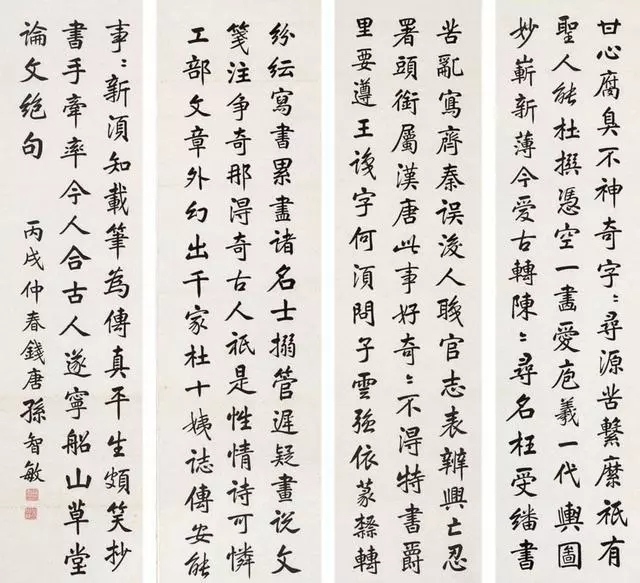 甘心腐臭不神奇字〻尋源苦繫縻祇有
聖人能杜撰憑空一畫愛庖羲一代輿圖
妙嶄新薄今愛古轉陳〻尋名枉受繙書
苦亂寫齊秦誤後人職官志表辨興亡忍
署頭銜屬漢唐此事好奇〻不得特書爵
里要遵王誤字何須問子雲強依篆隸轉
紛紜寫書累盡諸名士搦管遲疑畫說文
箋注爭奇那得奇古人祇是性情詩可憐
工部文章外幻出千家杜十姨誌傳安能
事〻新須知載筆為傳真平生頗笑抄
書手牽率今人合古人遂寧船山草堂
論文絕句
丙戌仲春錢唐孫智敏